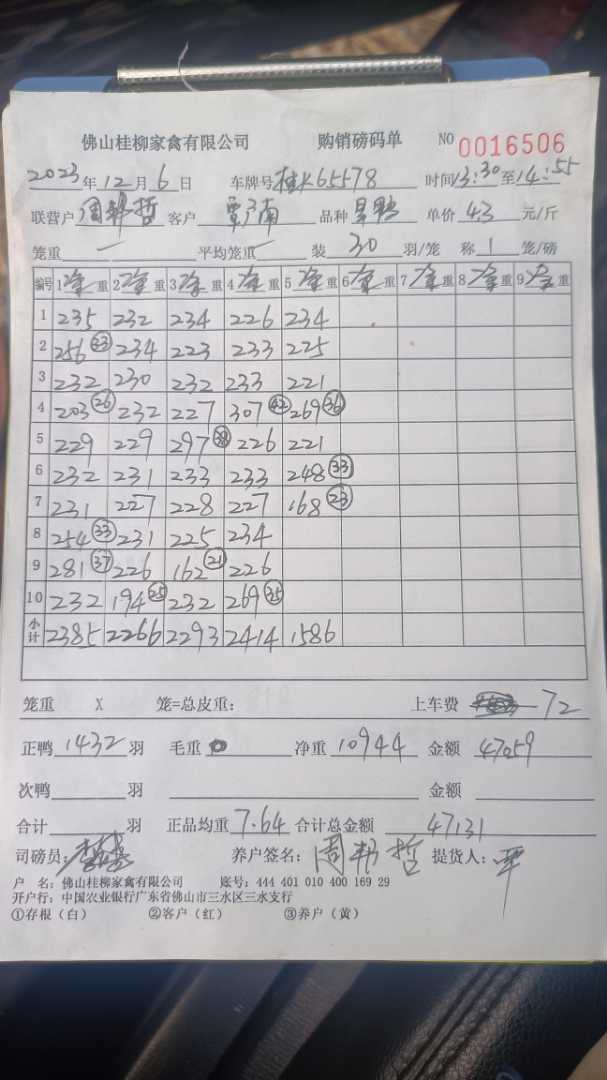 佛山桂柳家禽有限公司 购销磅码单 NO 0016506
2023年12月6日 车牌号桂K65578 时间13:30至14:55
联营户 周邦哲 客户 覃广南 品种 单价 4.3 元/斤
笼重 一 平均笼重 一 装 30 羽/笼 称 1 笼/磅
编号 1 重 2 重 3 重 4 重 5 重 6 重 7 重 8 重 9 重
1 235 232 234 226 234
2 256 33 234 223 233 225
3 232 230 232 233 221
4 203 26 232 227 307 42 269 36
5 229 229 297 38 226 221
6 232 231 233 233 248 33
7 231 227 228 227 168 23
8 254 33 231 225 234
9 281 37 226 162 21 226
10 232 194 25 232 269 35
小计 2385 2266 2293 2414 1586
笼重 X 笼=总皮重: 上车费 72
正鸭 1432 羽 毛重 净重 10944 金额 47059
次鸭 羽 金额
合计 羽 正品均重 7.64 合计总金额 47131
司磅员: 养户签名: 周邦哲 提货人: 覃
户 名: 佛山桂柳家禽有限公司 账号: 444 401 010 400 169 29
开户行: 中国农业银行广东省佛山市三水区三水支行
①存根（白） ②客户（红） ③养户（黄）